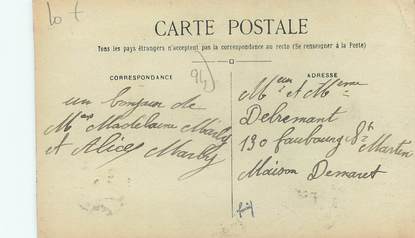 10 f
CARTE POSTALE
Tous les pays étrangers n'acceptent pas la correspondance au recto (Se renseigner à la Poste)
94
CORRESPONDANCE
ADRESSE
un bonjour de
Madelaine Marby
et Alice Marby
Mr et Mme
Delremant
130 faubourg St Martin
Maison Demaret